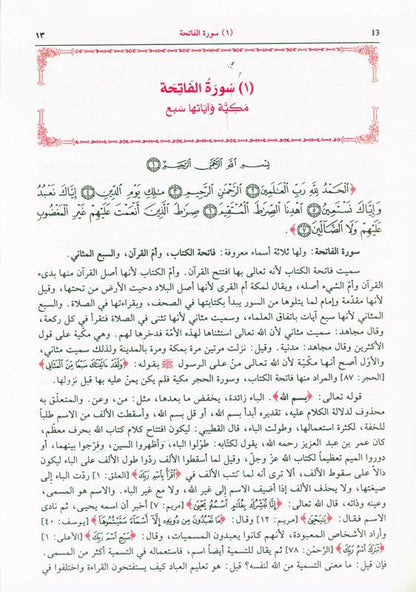 13 (١) سورة الفاتحة ١٣
(١) سُورَةُ الفَاتِحَة
مَكيَّة وَآيَاتها سَبع
بِسْمِ ٱللَّهِ ٱلرَّحْمَٰنِ ٱلرَّحِيمِ ١
﴿ٱلْحَمْدُ لِلَّهِ رَبِّ ٱلْعَٰلَمِينَ ٢ ٱلرَّحْمَٰنِ ٱلرَّحِيمِ ٣ مَٰلِكِ يَوْمِ ٱلدِّينِ ٤ إِيَّاكَ نَعْبُدُ
وَإِيَّاكَ نَسْتَعِينُ ٥ ٱهْدِنَا ٱلصِّرَٰطَ ٱلْمُسْتَقِيمَ ٦ صِرَٰطَ ٱلَّذِينَ أَنْعَمْتَ عَلَيْهِمْ غَيْرِ ٱلْمَغْضُوبِ
عَلَيْهِمْ وَلَا ٱلضَّآلِّينَ ٧﴾
سورة الفاتحة: ولها ثلاثة أسماء معروفة: فاتحة الكتاب، وأم القرآن، والسبع المثاني.
سميت فاتحة الكتاب لأنه تعالى بها افتتح القرآن. وأم الكتاب لأنها أصل القرآن منها بدىء
القرآن وأم الشيء أصله، ويقال لمكة أم القرى لأنها أصل البلاد دحيت الأرض من تحتها، وقيل
لأنها مقدّمة وإمام لما يتلوها من السور يبدأ بكتابتها في الصحف، وبقراءتها في الصلاة. والسبع
المثاني لأنها سبع آيات باتفاق العلماء، وسميت مثاني لأنها تثنى في الصلاة فتقرأ في كل ركعة،
وقال مجاهد: سميت مثاني لأن الله تعالى استثناها لهذه الأمّة فدخرها لهم. وهي مكية على قول
الأكثرين وقال مجاهد: مدنية. وقيل: نزلت مرتين مرة بمكة ومرة بالمدينة ولذلك سميت مثاني،
والأوّل أصح أنها مكيّة لأن الله تعالى منّ على الرسول ﷺ بقوله: ﴿وَلَقَدْ ءَاتَيْنَٰكَ سَبْعًا مِّنَ ٱلْمَثَانِى﴾
[الحجر: ٨٧] والمراد منها فاتحة الكتاب، وسورة الحجر مكية فلم يكن يمنّ عليه بها قبل نزولها.
قوله تعالى: ﴿بسم الله﴾. الباء زائدة، يخفض ما بعدها، مثل: من، وعن. والمتعلّق به
محذوف لدلالة الكلام عليه، تقديره أبدأ بسم الله، أو قل بسم الله، وأسقطت الألف من الاسم طلباً
للخفة، لكثرة استعمالها، وطولت الباء، قال القطيبي: ليكون افتتاح كلام كتاب الله بحرف معظّم،
كان عمر بن عبد العزيز رحمه الله، يقول لكتّابه: طوّلوا الباء، وأظهروا السين، وفرّجوا بينهما، أو
دوروا الميم تعظيماً لكتاب الله عزّ وجلّ، وقيل لما أسقطوا الألف ردّوا طول الألف على الباء ليكون
دالاً على سقوط الألف، ألا ترى أنه لما كتب الألف في ﴿ٱقْرَأْ بِٱسْمِ رَبِّكَ﴾ [العلق: ١] ردّت الباء إلى
صيغتها، ولا يحذف الألف إذا أضيف الاسم إلى غير الله، ولا مع غير الباء. والاسم هو المسمى،
وعينه وذاته، قال الله تعالى: ﴿إِنَّا نُبَشِّرُكَ بِغُلَٰمٍ ٱسْمُهُۥ يَحْيَىٰ﴾ [مريم: ٧] أخبر أن اسمه يحيى، ثم نادى
الاسم فقال: ﴿يَٰيَحْيَىٰ﴾ [مريم: ١٢] وقال: ﴿مَا تَعْبُدُونَ مِن دُونِهِۦٓ إِلَّآ أَسْمَآءً سَمَّيْتُمُوهَآ﴾ [يوسف: ٤٠]
وأراد الأشخاص المعبودة، لأنهم كانوا يعبدون المسميات، وقال: ﴿سَبِّحِ ٱسْمَ رَبِّكَ﴾ [الأعلى: ١]
﴿تَبَٰرَكَ ٱسْمُ رَبِّكَ﴾ [الرّحمٰن: ٧٨] ثم يقال للتسمية أيضاً اسم، فاستعماله في التسمية أكثر من المسمى.
فإن قيل: ما معنى التسمية من الله لنفسه؟ قيل: هو تعليم العباد كيف يستفتحون القراءة واختلفوا في